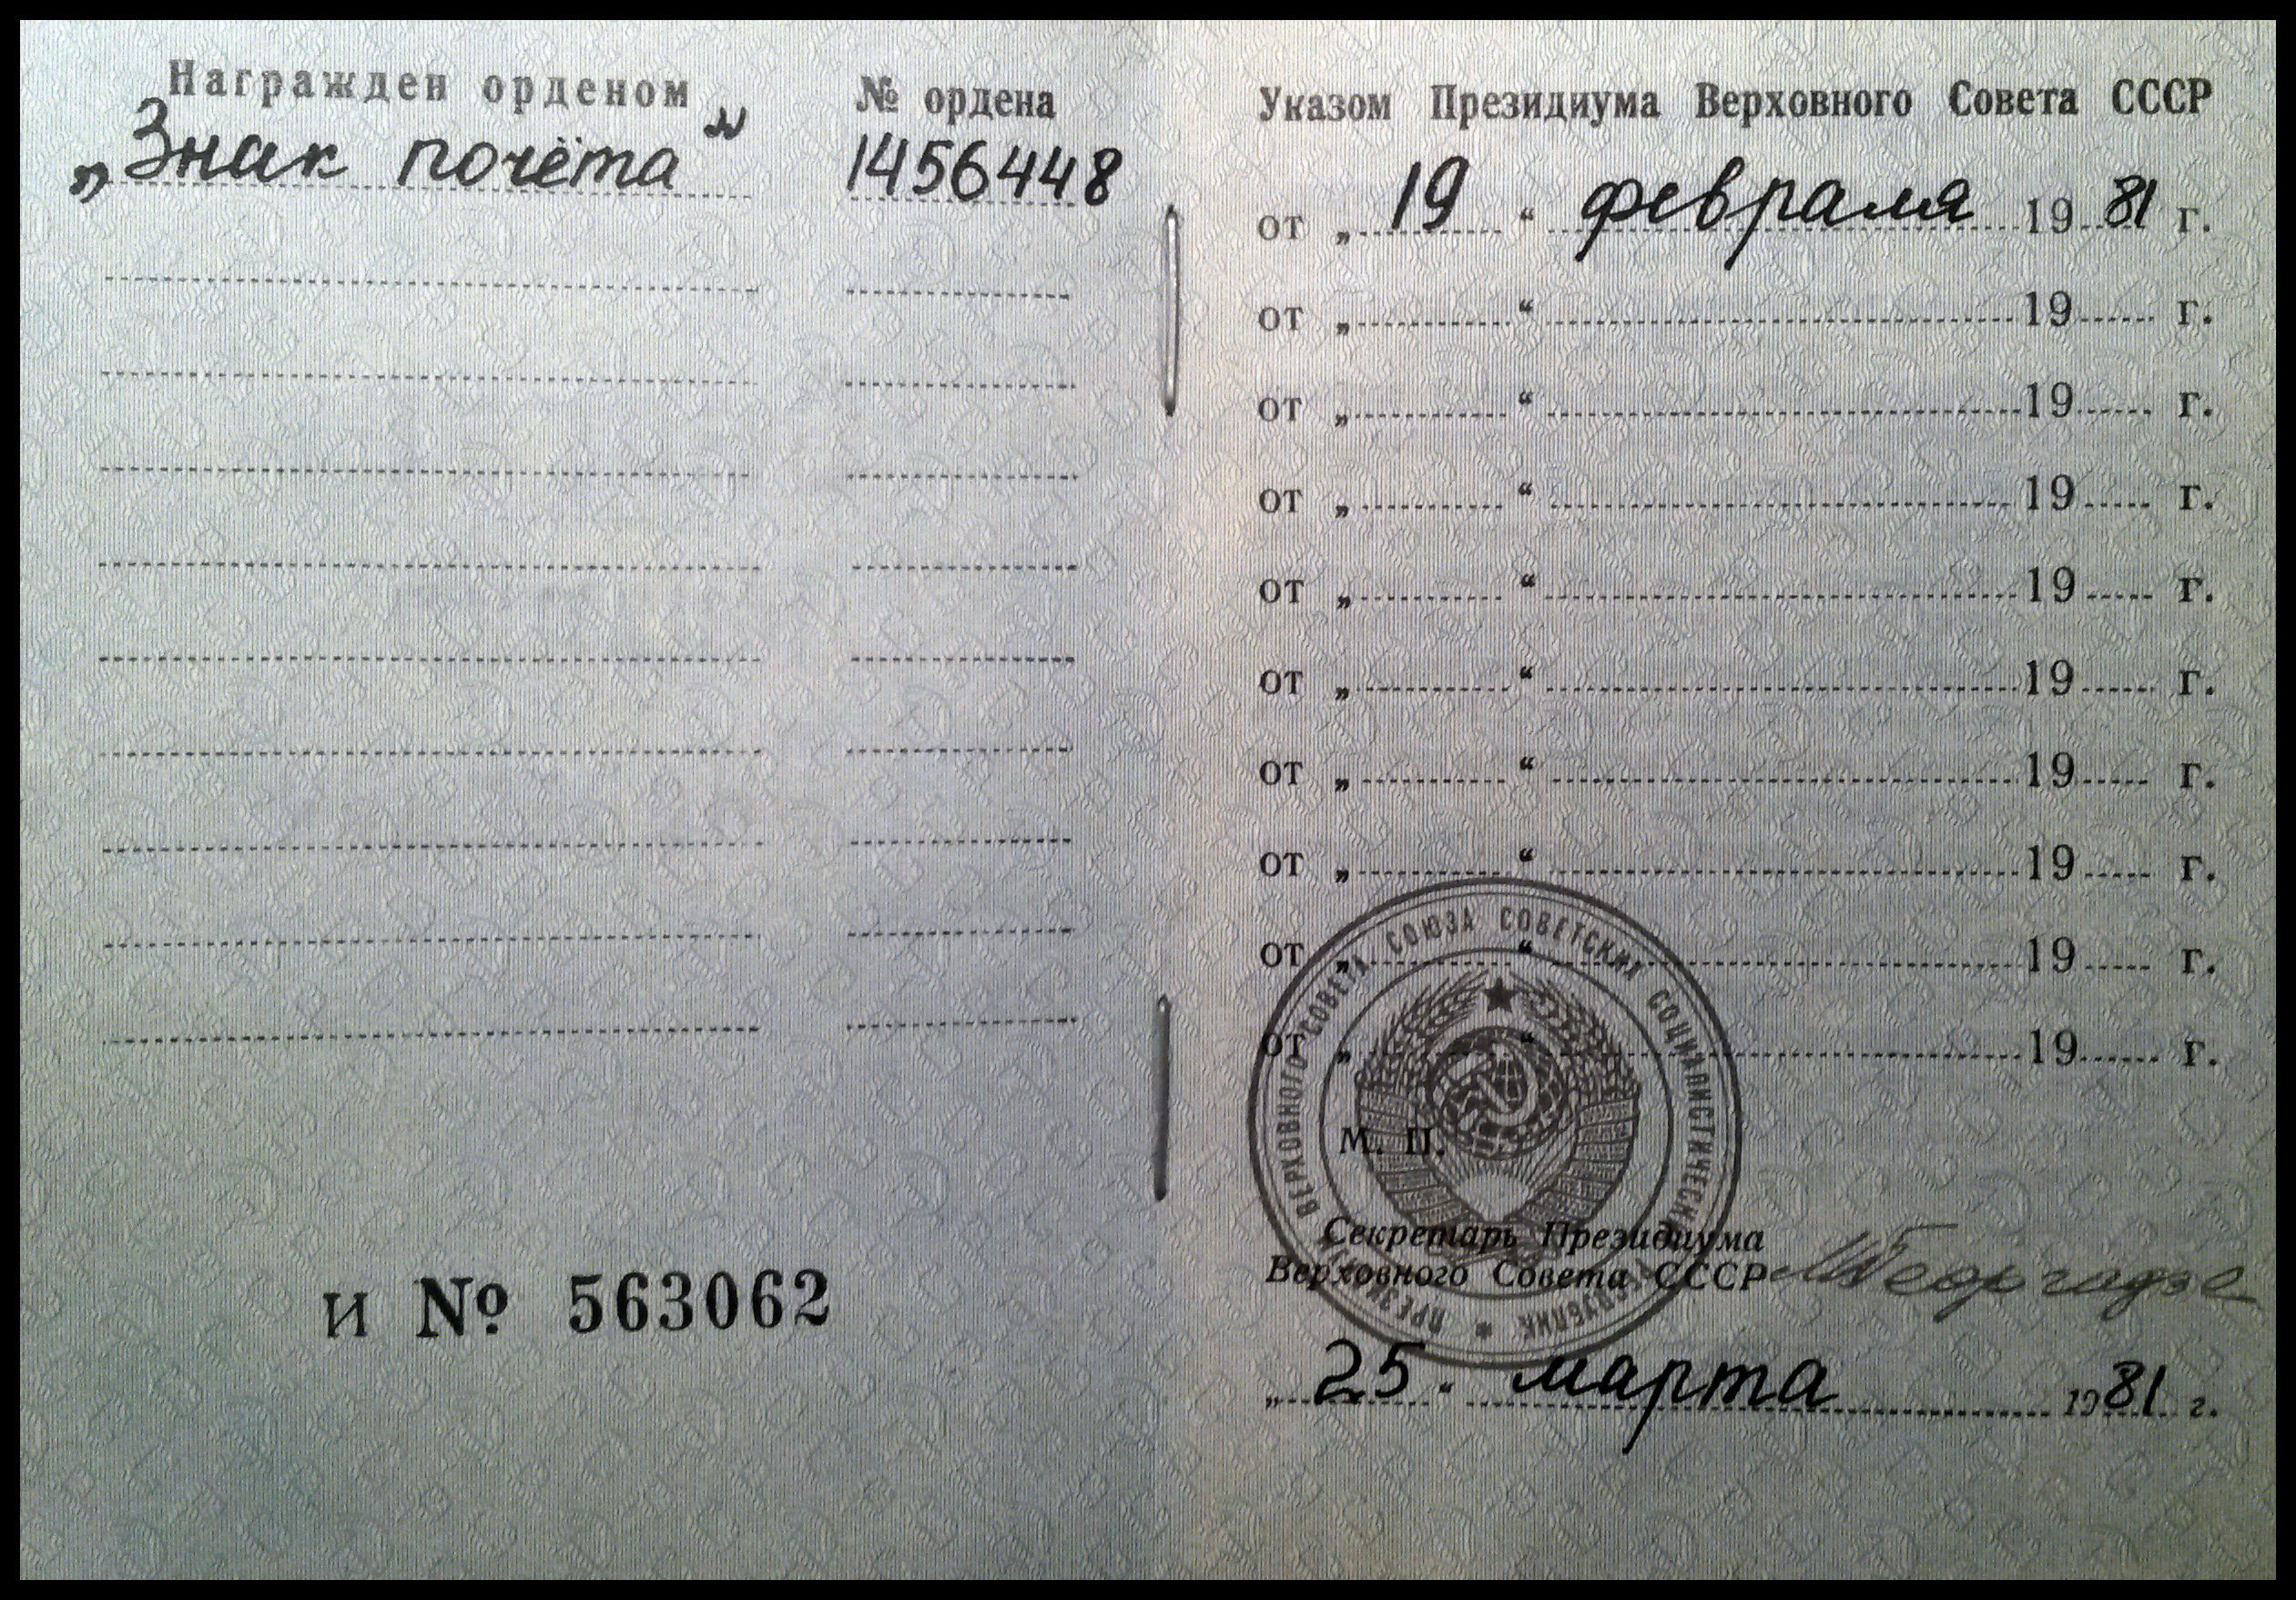 Награжден орденом
„Знак почёта“
№ ордена
1456448
И № 563062
Указом Президиума Верховного Совета СССР
от „ 19 “ февраля 19 81 г.
от „ “ 19 г.
от „ “ 19 г.
от „ “ 19 г.
от „ “ 19 г.
от „ “ 19 г.
от „ “ 19 г.
от „ “ 19 г.
от „ “ 19 г.
от „ “ 19 г.
ВЕРХОВНОГО СОВЕТА СОЮЗА СОВЕТСКИХ СОЦИАЛИСТИЧЕСКИХ
М. П.
Секретарь Президиума
Верховного Совета СССР МГеоргадзе
„ 25 “ марта 1981 г.